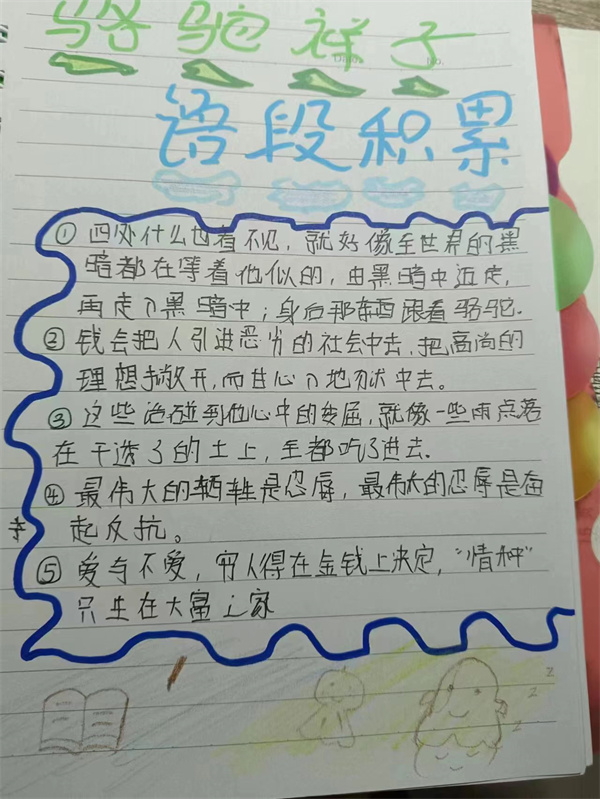 骆驼祥子
语段积累
① 四处什么也看不见，就好像全世界的黑
暗都在等着他似的，由黑暗中迈走，
再走入黑暗中；身后那东西跟着骆驼.
② 钱会把人引进恶劣的社会中去，把高尚的
理想撇开，而甘心入地狱中去。
③ 这些话碰到他心中的委屈，就像一些雨点落
在干透了的土上，全都吃了进去.
④ 最伟大的牺牲是忍辱，最伟大的忍辱是奋
起反抗。
⑤ 爱与不爱，穷人得在金钱上决定，“情种”
只生在大富之家
z
z
z